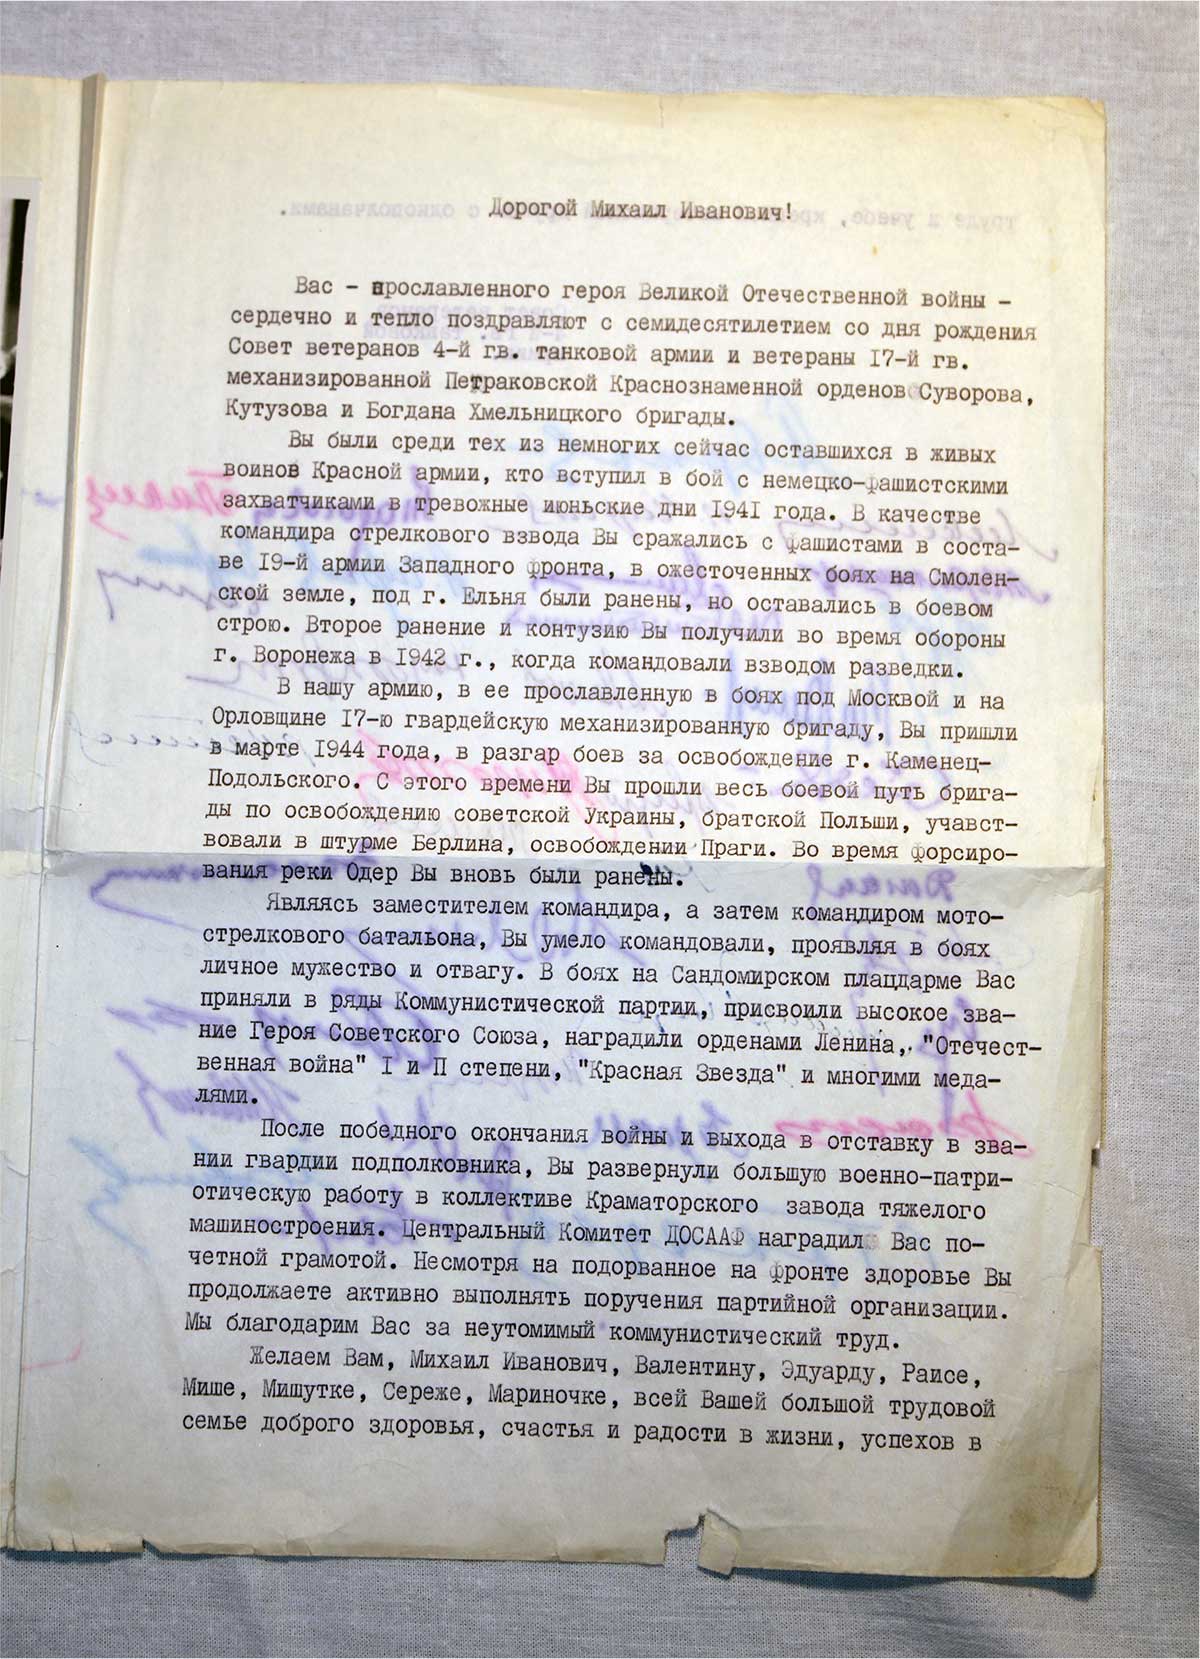 Дорогой Михаил Иванович!
Вас - прославленного героя Великой Отечественной войны -
сердечно и тепло поздравляют с семидесятилетием со дня рождения
Совет ветеранов 4-й гв. танковой армии и ветераны 17-й гв.
механизированной Петраковской Краснознаменной орденов Суворова,
Кутузова и Богдана Хмельницкого бригады.
Вы были среди тех из немногих сейчас оставшихся в живых
воинов Красной армии, кто вступил в бой с немецко-фашистскими
захватчиками в тревожные июньские дни 1941 года. В качестве
командира стрелкового взвода Вы сражались с фашистами в соста-
ве 19-й армии Западного фронта, в ожесточенных боях на Смолен-
ской земле, под г. Ельня были ранены, но оставались в боевом
строю. Второе ранение и контузию Вы получили во время обороны
г. Воронежа в 1942 г., когда командовали взводом разведки.
В нашу армию, в ее прославленную в боях под Москвой и на
Орловщине 17-ю гвардейскую механизированную бригаду, Вы пришли
в марте 1944 года, в разгар боев за освобождение г. Каменец-
Подольского. С этого времени Вы прошли весь боевой путь брига-
ды по освобождению советской Украины, братской Польши, учавст-
вовали в штурме Берлина, освобождении Праги. Во время форсиро-
вания реки Одер Вы вновь были ранены.
Являясь заместителем командира, а затем командиром мото-
стрелкового батальона, Вы умело командовали, проявляя в боях
личное мужество и отвагу. В боях на Сандомирском плацдарме Вас
приняли в ряды Коммунистической партии, присвоили высокое зва-
ние Героя Советского Союза, наградили орденами Ленина, "Отечест-
венная война" I и П степени, "Красная Звезда" и многими меда-
лями.
После победного окончания войны и выхода в отставку в зва-
нии гвардии подполковника, Вы развернули большую военно-патри-
отическую работу в коллективе Краматорского завода тяжелого
машиностроения. Центральный Комитет ДОСААФ наградил Вас по-
четной грамотой. Несмотря на подорванное на фронте здоровье Вы
продолжаете активно выполнять поручения партийной организации.
Мы благодарим Вас за неутомимый коммунистический труд.
Желаем Вам, Михаил Иванович, Валентину, Эдуарду, Раисе,
Мише, Мишутке, Сереже, Мариночке, всей Вашей большой трудовой
семье доброго здоровья, счастья и радости в жизни, успехов в